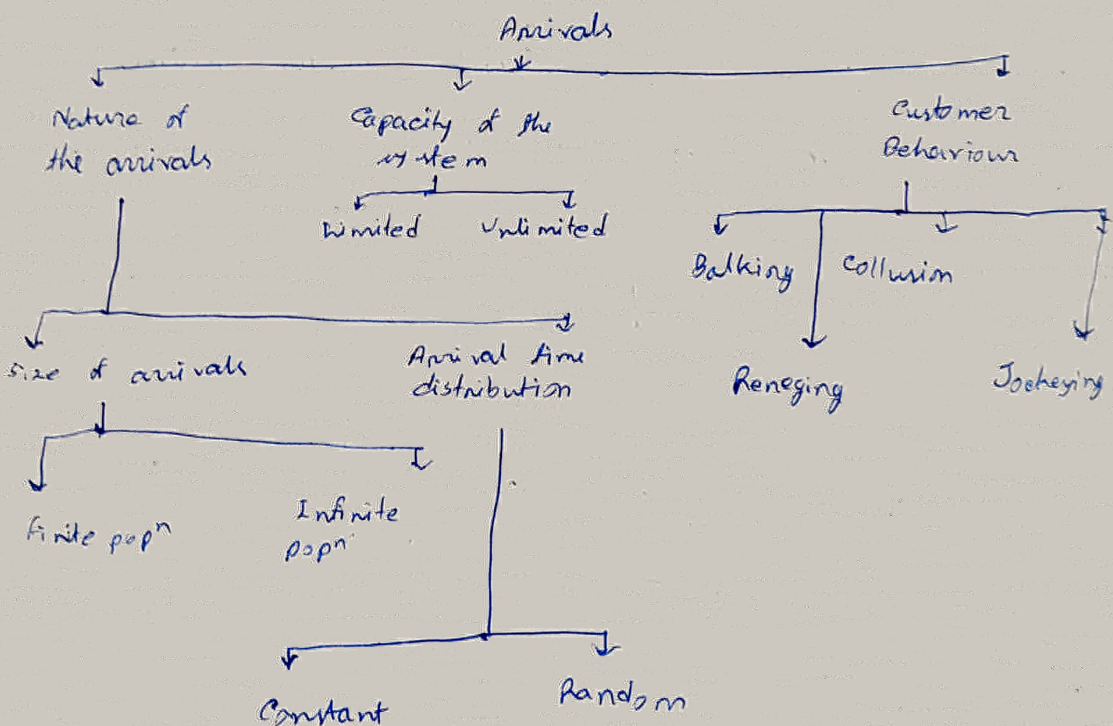 Arrivals
Nature of
the arrivals
Capacity of the
system
Customer
Behaviour
Limited
Unlimited
Balking
Collusion
Reneging
Jockeying
Size of arrivals
Arrival time
distribution
finite popⁿ
Infinite
popⁿ
Constant
Random